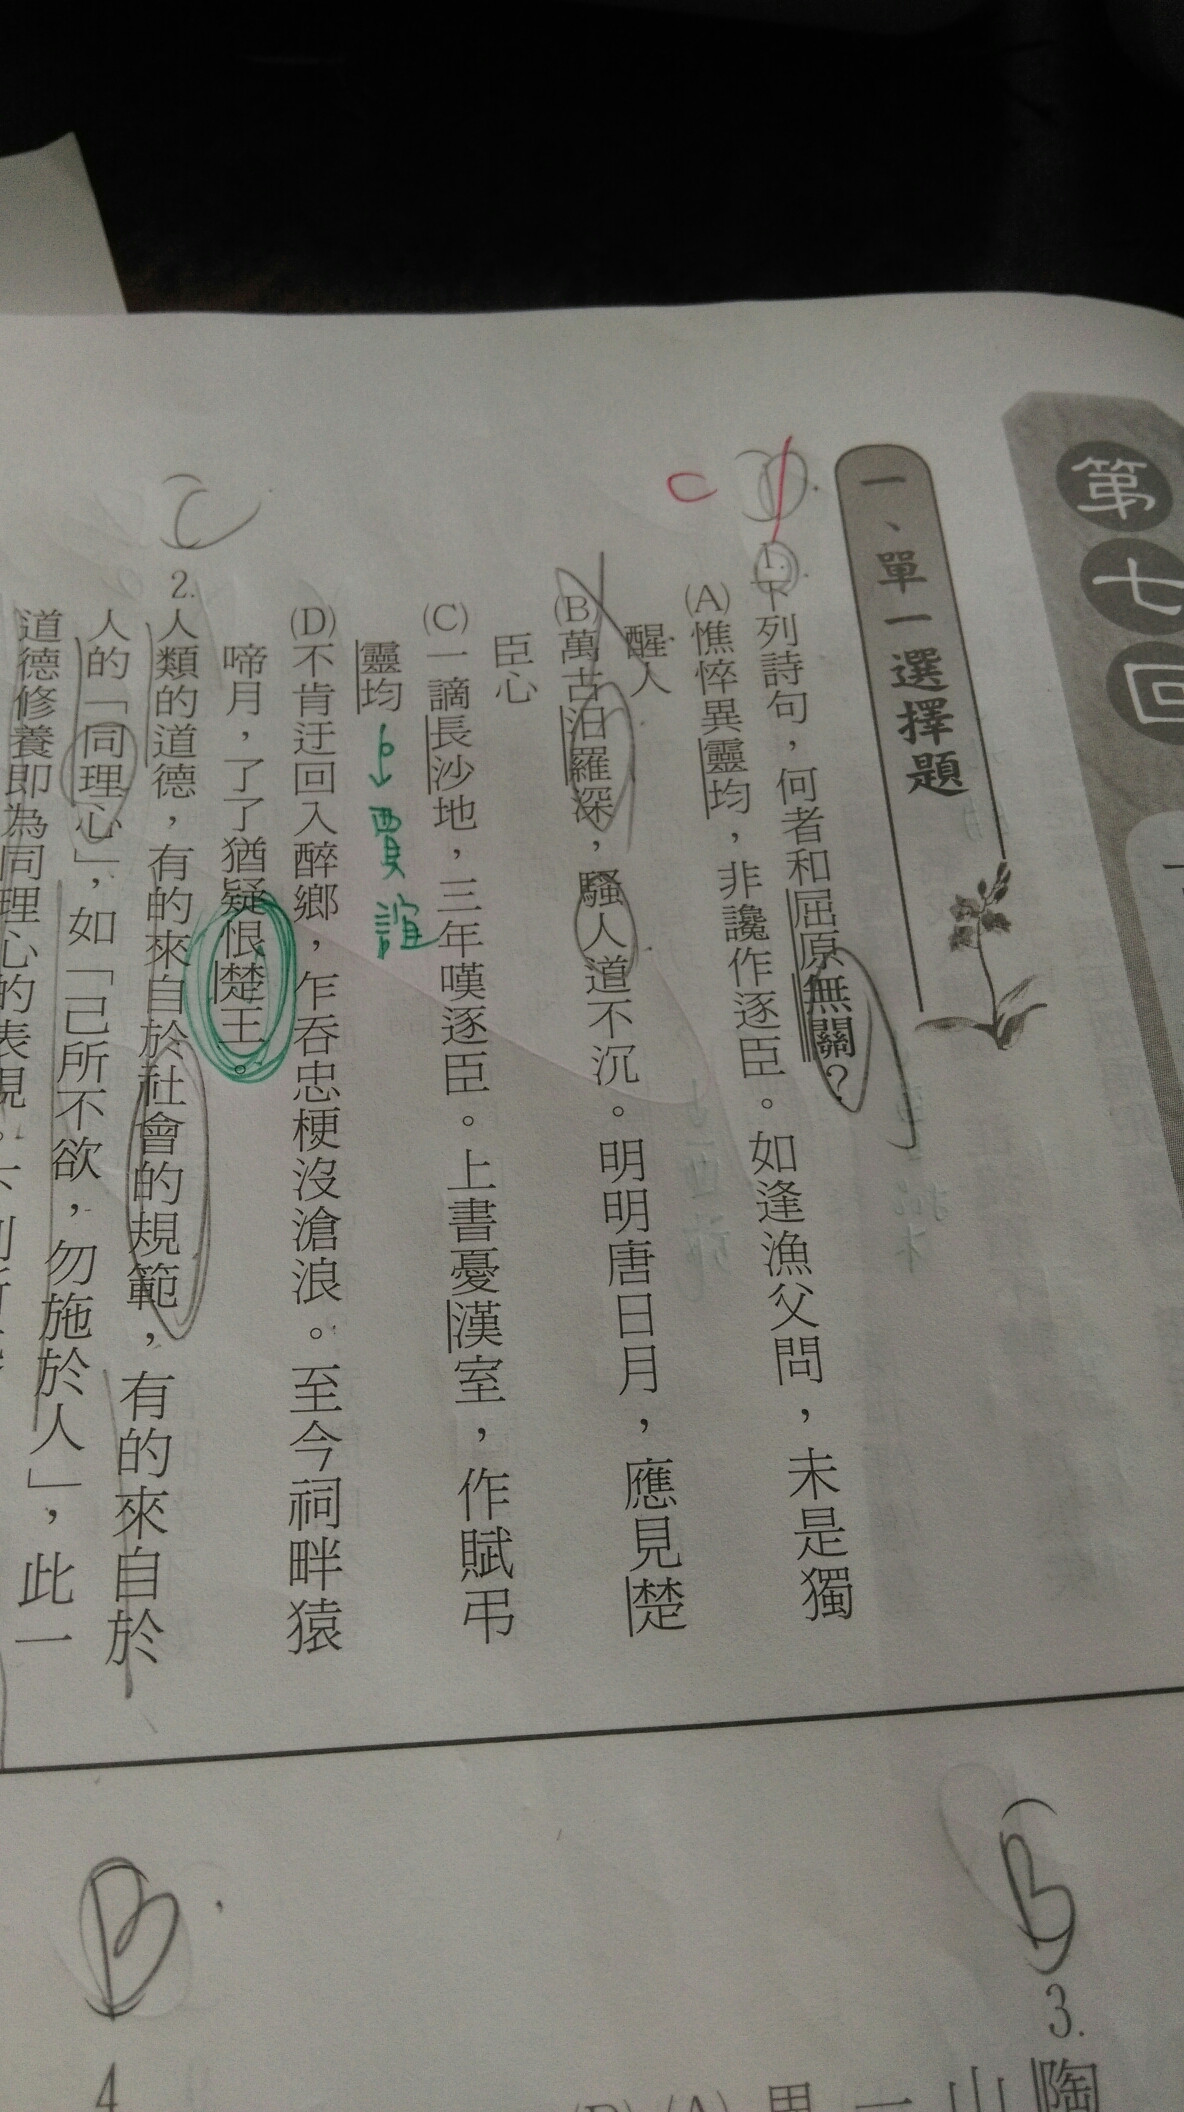 第七回
一、單一選擇題
C
1.下列詩句，何者和屈原無關？
(A)憔悴異靈均，非讒作逐臣。如逢漁父問，未是獨
醒人
(B)萬古汨羅深，騷人道不沉。明明唐日月，應見楚
臣心
(C)一謫長沙地，三年嘆逐臣。上書憂漢室，作賦弔
靈均
賈誼
(D)不肯迂回入醉鄉，乍吞忠梗沒滄浪。至今祠畔猿
啼月，了了猶疑恨楚王。
2.人類的道德，有的來自於社會的規範，有的來自於
人的「同理心」，如「己所不欲，勿施於人」，此一
道德修養即為同理心的表現。下列
(B)
3.
陶
山
一
(A)
B
4